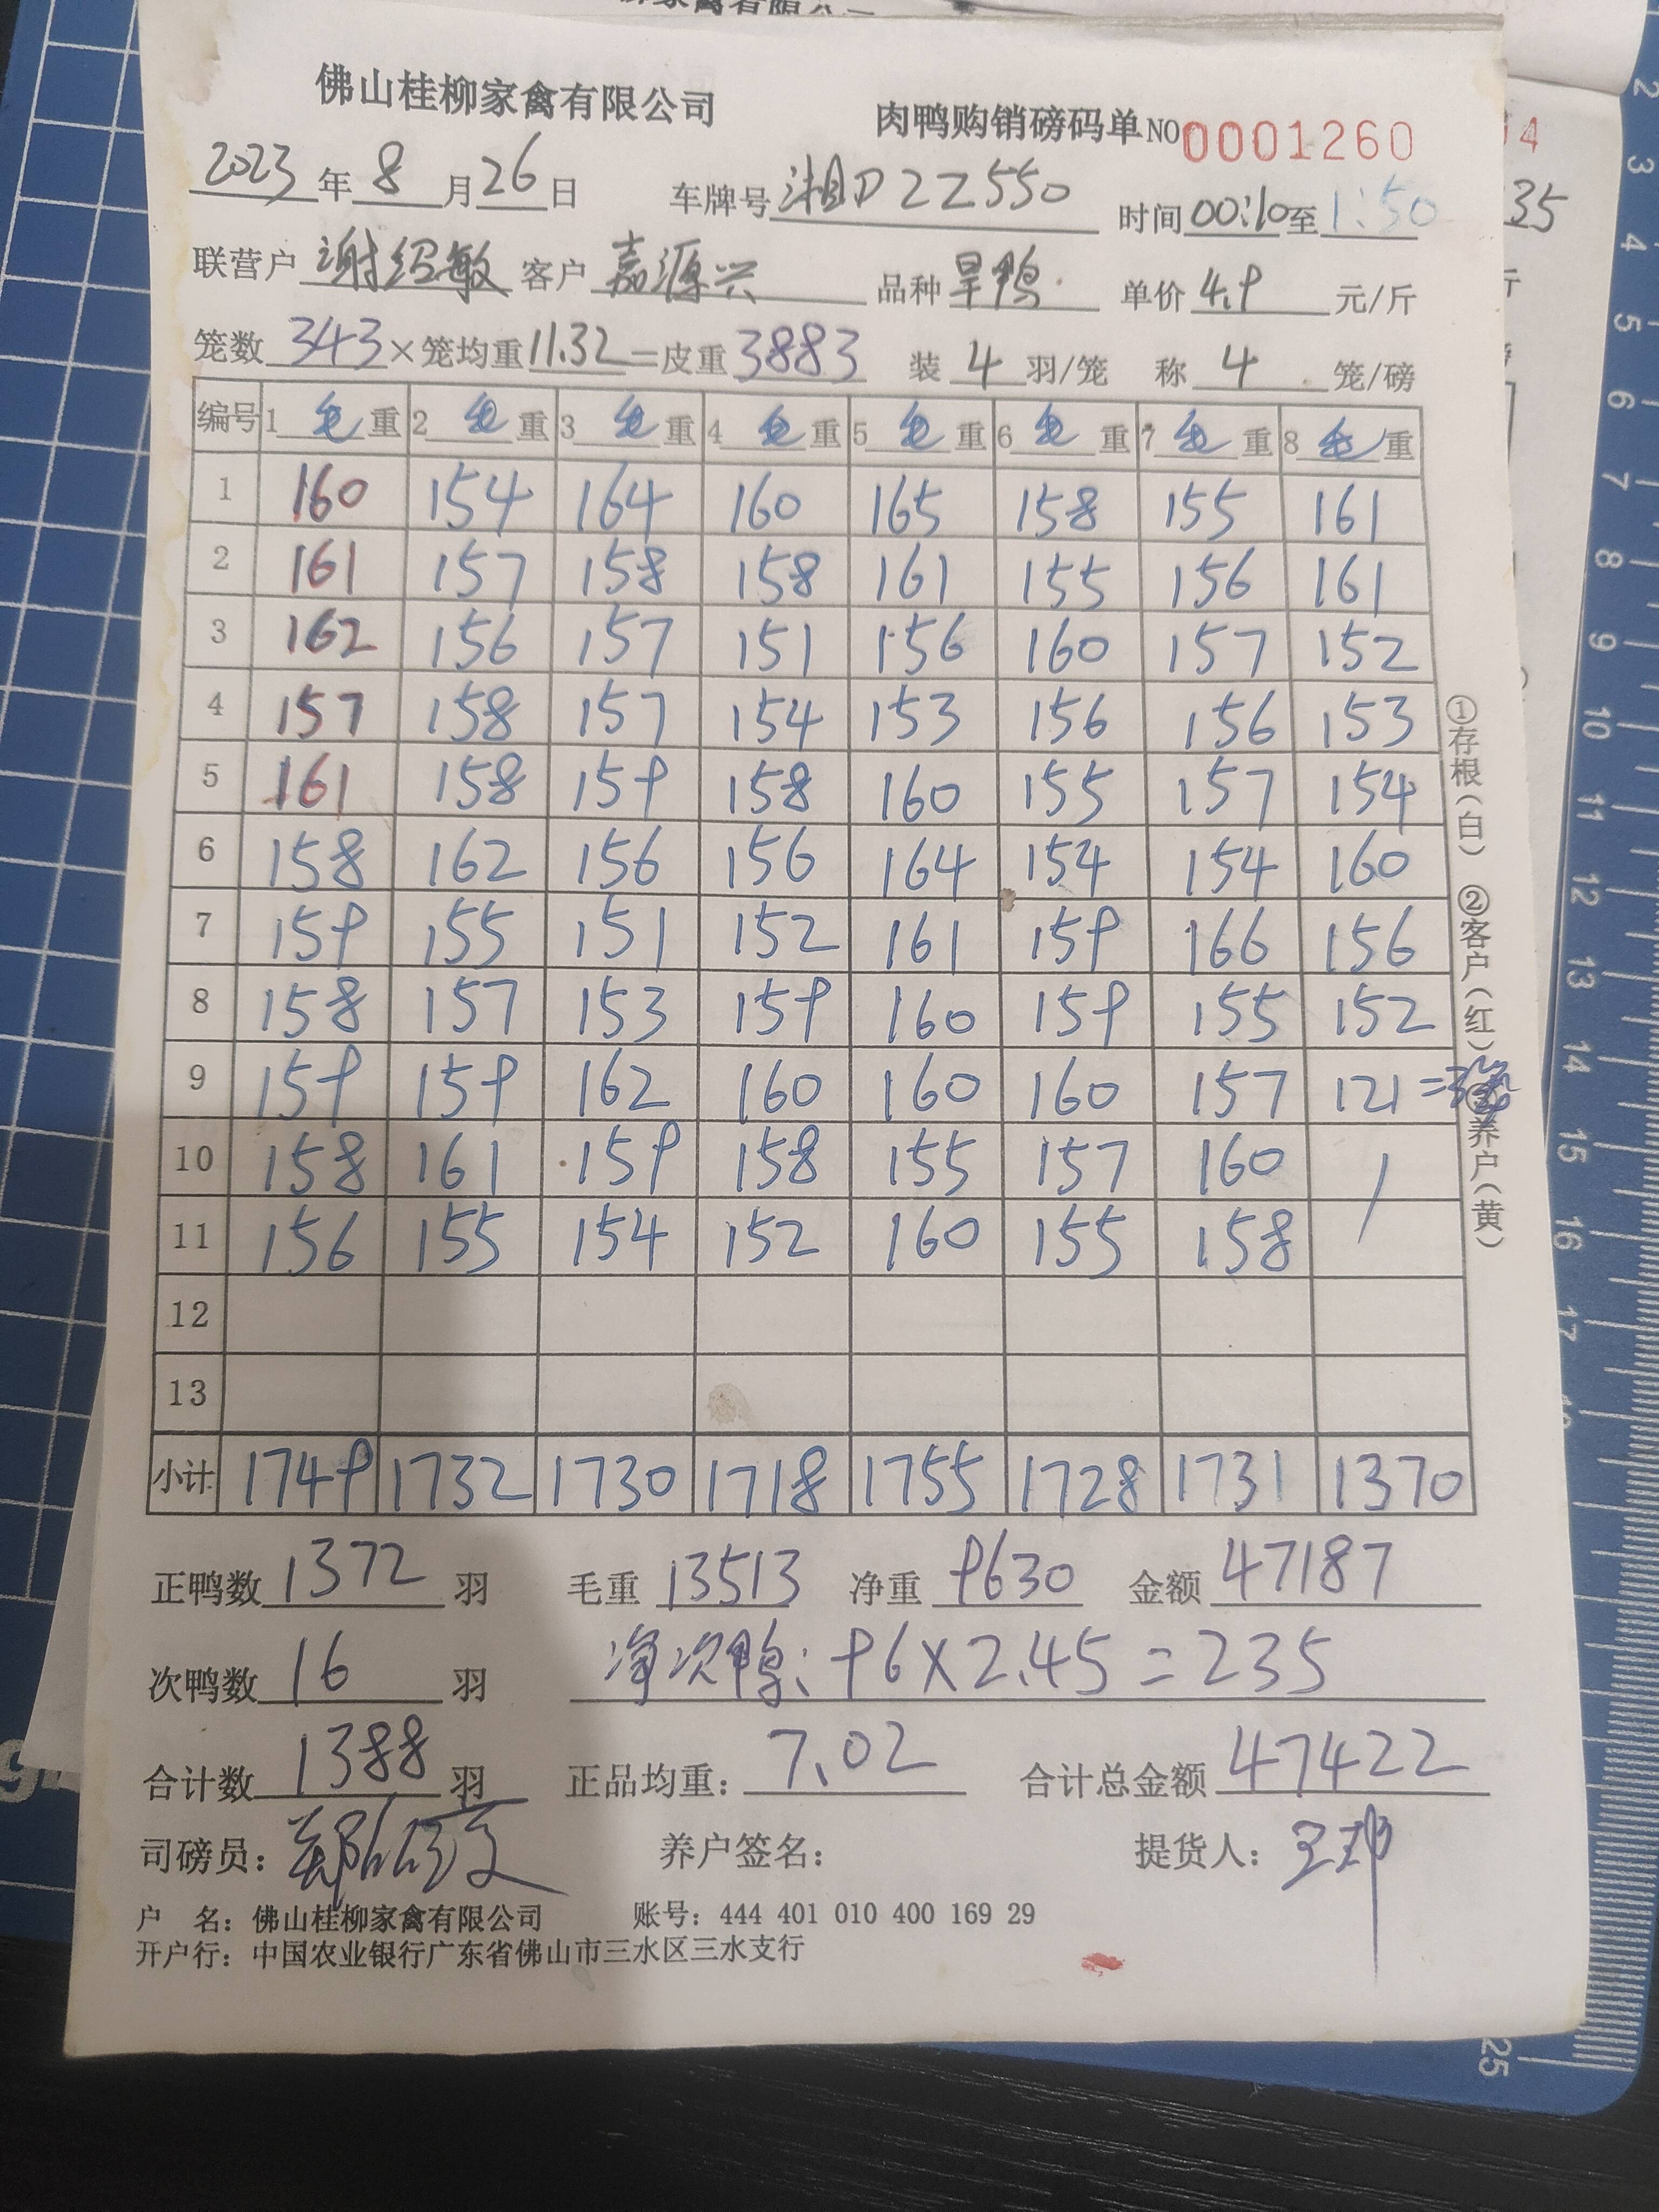 佛山桂柳家禽有限公司 肉鸭购销磅码单NO 0001260
2023年8月26日 车牌号 湘D2Z550 时间00:10至1:50
联营户 谢绍敏 客户 嘉源兴 品种 旱鸭 单价 4.9 元/斤
笼数 343×笼均重11.32=皮重3883 装 4 羽/笼 称 4 笼/磅
编号 1 毛 重 2 毛 重 3 毛 重 4 毛 重 5 毛 重 6 毛 重 7 毛 重 8 毛 重
1 160 154 164 160 165 158 155 161
2 161 157 158 158 161 155 156 161
3 162 156 157 151 156 160 157 152
4 157 158 157 154 153 156 156 153
5 161 158 159 158 160 155 157 154
6 158 162 156 156 164 154 154 160
7 159 155 151 152 161 159 166 156
8 158 157 153 159 160 159 155 152
9 159 159 162 160 160 160 157 121=3笼
10 158 161 159 158 155 157 160 /
11 156 155 154 152 160 155 158
12
13
小计 1749 1732 1730 1718 1755 1728 1731 1370
正鸭数 1372 羽 毛重 13513 净重 9630 金额 47187
次鸭数 16 羽 净次鸭: 96×2.45=235
合计数 1388 羽 正品均重: 7.02 合计总金额 47422
司磅员: 养户签名: 提货人:
户 名: 佛山桂柳家禽有限公司 账号: 444 401 010 400 169 29
开户行: 中国农业银行广东省佛山市三水区三水支行
①存根(白) ②客户(红) 养户(黄)